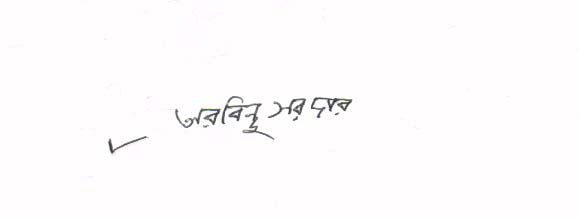 অরবিন্দু সরদার